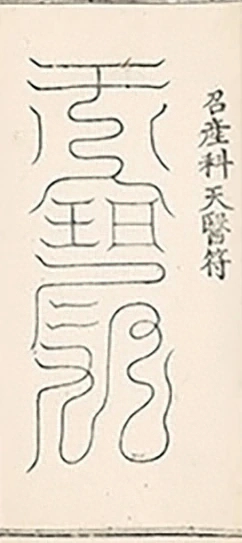 召產科天醫符